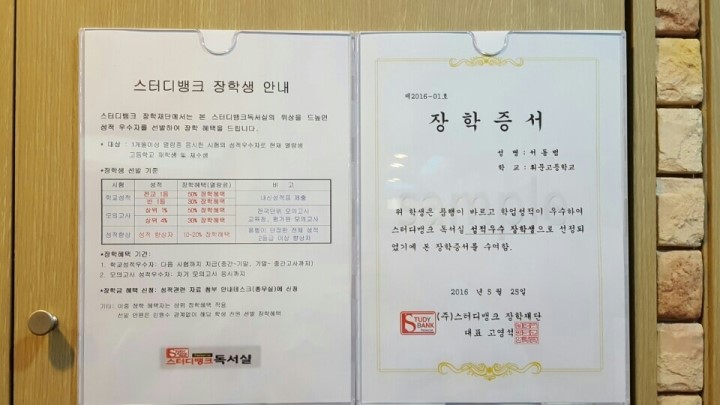 스터디뱅크 장학생 안내
스터디뱅크 장학재단에서는 본 스터디뱅크독서실의 위상을 드높인
성적 우수자를 선발하여 장학 혜택을 드립니다.
* 대상 : 1개월이상 열람중 응시한 시험의 성적우수자로 현재 열람생
고등학교 재학생 및 재수생
*장학생 선발 기준
시험 성적 장학혜택(열람료) 비 고
학교성적 전교 1등 50% 장학혜택 내신성적표 제출
반 1등 30% 장학혜택
모의고사 상위 1% 50% 장학혜택 전국단위 모의고사
상위 4% 30% 장학혜택 교육청, 평가원 모의고사
성적향상 성적 향상자 10-20% 장학혜택 성적
2등급 이상 향상자
*장학혜택 기간:
1. 학교성적우수자: 다음 시험까지 지급(중간-기말, 기말- 중간고사까지)
2. 모의고사 성적우수자: 차기 모의고사 응시까지
*장학금 혜택 신청: 성적관련 자료 첨부 안내데스크(총무실)에 신청
기타: 이중 장학 혜택자는 상위 장학혜택 적용
선발 인원은 인원수 관계없이 해당 학생 전원 선발 장학혜택
스터디뱅크 독서실
제2016-01호
장 학 증 서
성 명 : 서 동 범
학 교 : 휘문고등학교
위 학생은 품행이 바르고 학업성적이 우수하여
스터디뱅크 독서실 성적우수 장학생으로 선정되
었기에 본 장학증서를 수여함.
2016 년 5 월 25일
STUDY
BANK
(주)스터디뱅크 장학재단
대표 고영석